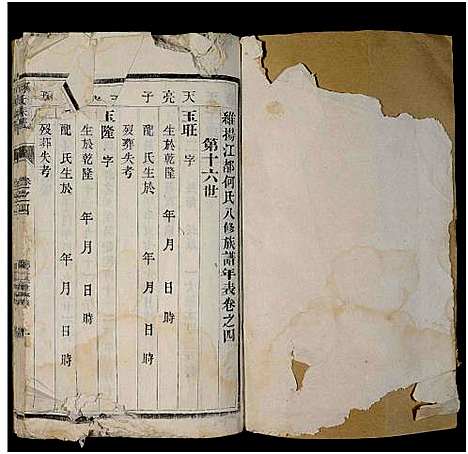 維揚江都何氏八修族譜年表卷之四
第十六世
天
玉旺 字
亮
生於乾隆 年 月 日 時
子
龍 氏生於 年 月 日 時
歿葬失考
玉隆 字
生於乾隆 年 月 日 時
龍 氏生於 年 月 日 時
歿葬失考
卷之四